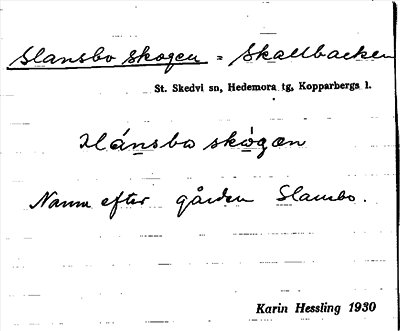 Slansbo skogen = Skallbacken
St. Skedvi sn, Hedemora tg, Kopparbergs l.
slánsbo skógæn
Namn efter gården Slansbo.
Karin Hessling 1930